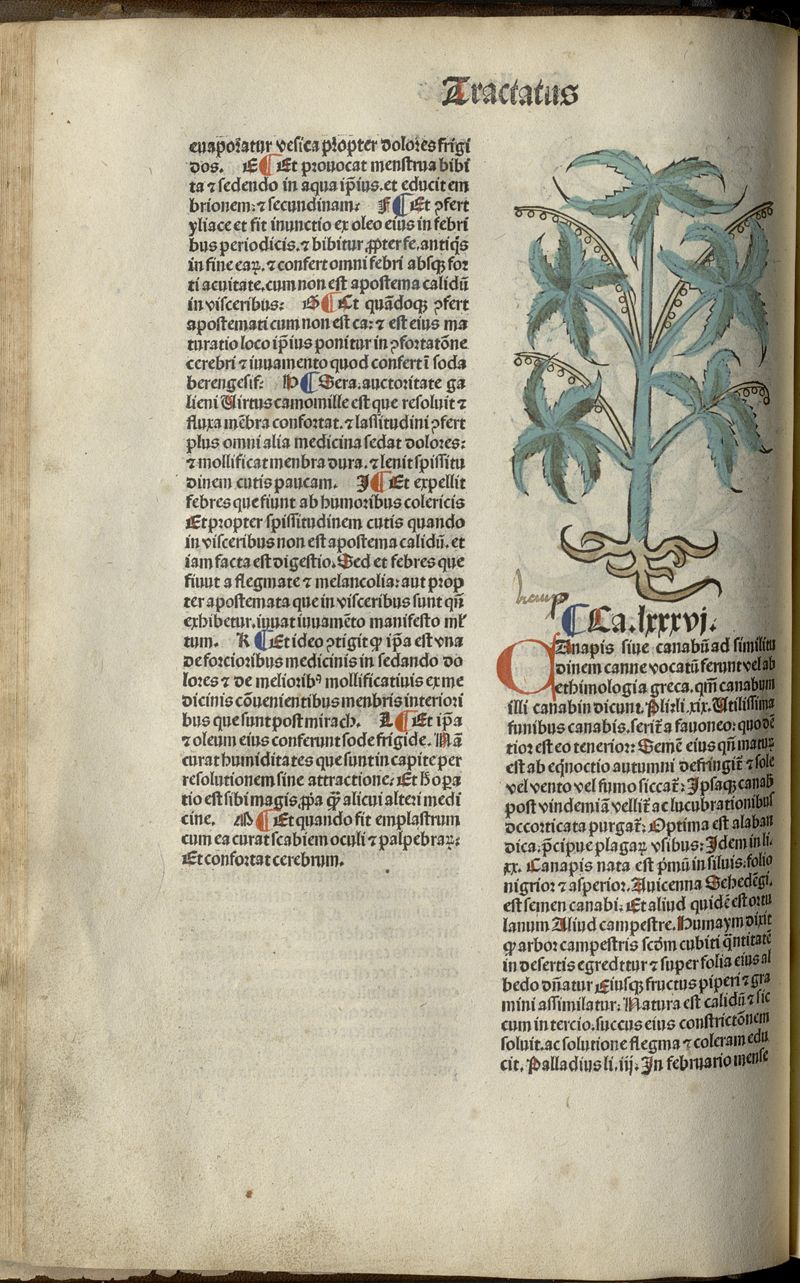 Tractatus
euaporatur vesica propter dolores frigi
dos. E ¶ Et prouocat menstrua bibi
ta ⁊ sedendo in aqua ip̄ius. et educit em
brionem: ⁊ secundinam: F ¶ Et ꝯfert
yliace et fit inunctio ex oleo eius in febri
bus periodicis. ⁊ bibitur ꝓpter se. antiq̄s
in fine eaꝝ. ⁊ confert omni febri absqꝫ for
ti acuitate. cum non est apostema calidū
in visceribus: G ¶ Et quādoqꝫ ꝯfert
apostemati cum non est ca: ⁊ est eius ma
turatio loco ip̄ius ponitur in ꝯfortatōne
cerebri ⁊ iuuamento quod confert ī soda
berengesif: H ¶ Sera. auctoritate ga
lieni Uirtus camomille est que resoluit ⁊
fluxa mēbra confortat. ⁊ lassitudini ꝯfert
plus omni alia medicina sedat dolores:
⁊ mollificat menbra dura. ⁊ lenit spissitu
dinem cutis paucam. I ¶ Et expellit
febres que fiunt ab humoribus colericis
Et propter spissitudinem cutis quando
in visceribus non est apostema calidū. et
iam facta est digestio. Sed et febres que
fiunt a flegmate ⁊ melancolia: aut prop
ter apostemata que in visceribus sunt qn̄
exhibetur. iuuat iuuamēto manifesto ml̄
tum. K ¶ Et ideo ꝯtigit ꝙ ip̄a est vna
de forcioribus medicinis in sedando do
lores ⁊ de meliorib⁹ mollificatiuis ex me
dicinis cōuenientibus menbris interiori
bus que sunt post mirach. L ¶ Et ip̄a
⁊ oleum eius conferunt sode frigide. Nā
curat humiditates que sunt in capite per
resolutionem sine attractione: Et h̄ opa
tio est sibi magis ꝓpa q̄ꝫ alicui alteri medi
cine. M ¶ Et quando fit emplastrum
cum ea curat scabiem oculi ⁊ palpebraꝝ:
Et confortat cerebrum.
hemp
¶ Ca. lxxxvj.
CAnapis siue canabū ad similitu
dinem canne vocatū ferunt vel ab
ethimologia greca. qm̄ canabum
illi canabin dicunt. Pli. li. xix. Utilissima
funibus canabis. serit̄ a fauoneo: quo dē
tior est eo tenerior: Semē eius qn̄ matuꝝ
est ab eq̄noctio autumni defringit̄ ⁊ sole
vel vento vel fumo siccat̄: Ipsaqꝫ canab̄
post vindemiā vellit̄ ac lucubrationibus
decorticata purgat̄: Optima est alaban
dica. p̄cipue plagaꝝ vsibus: Idem in li.
xx. Canapis nata est p̄mū in siluis. folio
nigrior ⁊ asperior. Auicenna Sehedēgi.
est semen canabi. Et aliud quidē est ortu
lanum Aliud campestre. Humaym dixit
ꝙ arbor campestris scd̄m cubiti q̄ntitatē
in desertis egreditur ⁊ super folia eius al
bedo dn̄atur Eiusqꝫ fructus piperi ⁊ gra
mini assimilatur: Natura est calidū ⁊ sic
cum in tercio. succus eius constrictōnem
soluit. ac solutione flegma ⁊ coleram edu
cit. Palladius li. iij. In februario mense